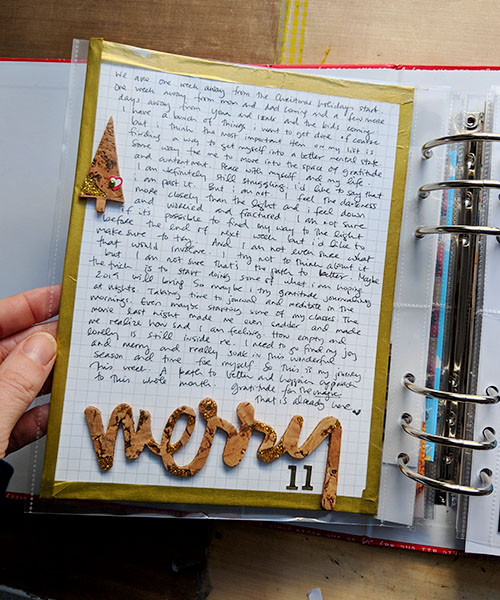 We are one week away from the Christmas holidays start.
One week away from mom and dad coming and a few more
days away from Yvan and Izabel and the kids coming.
I have a bunch of things I want to get done of course
but I think the most important item on my life is
finding a way to get myself into a better mental state
Some way for me to move into the space of gratitude
and contentment. Peace with myself and my life.
I am definitely still struggling. I'd like to say that
I am past it. But I am not. I feel the darkness
more closely than the light and i feel down
and worried and fractured. I am not sure
if its possible to find my way to the light
before the end of next week but i'd like to
make sure to try. And I am not even sure what
that would involve. I try not to think about it
but I am not sure that's the path to better. Maybe
the trick is to start doing some of what I am hoping
2019 will bring. So maybe i try gratitude journaling
at nights. Taking time to journal and meditate in the
mornings. Even maybe starting some of my classes. The
movie last night made me even sadder and made
me realize how sad I am feeling. How empty and
lonely is still inside me. I need to go find my joy
and merry and really soak in this wonderful
season and time for myself. So this is my journey
this week. A path to better and happier approach
to this whole month. gratitude for the magic
that is already here.
merry
11